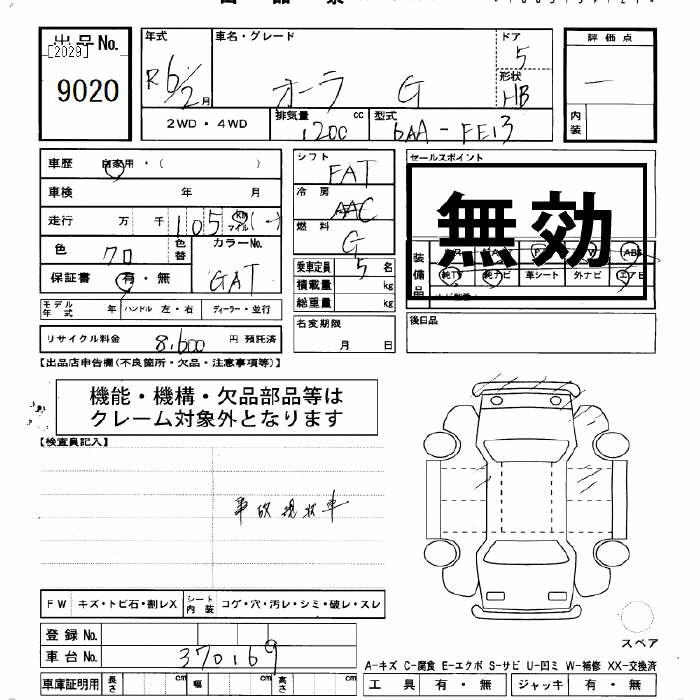 出品No.
[2029]
9020
年式
R6/2月
車名・グレード
オーラ G
ドア
5
形状
HB
2WD・4WD
排気量 cc
1200
型式
6AA-FE13
評価点
内装
車歴 自家用・( )
車検 年 月
走行 万 千 105 km マイル
色 クロ 色替
カラーNo.
GAT
保証書 有・無
モデル年式 年 ハンドル 左・右 ディーラー・並行
リサイクル料金 8,600 円 預託済
シフト
FAT
冷房
AAC
燃料
G
乗車定員 5 名
積載量 kg
総重量 kg
名変期限
月 日
セールスポイント
無効
装備品
ABS
純TV 純ナビ 革シート 外ナビ エアB
後日品
【出品店申告欄(不良箇所・欠品・注意事項等)】
機能・機構・欠品部品等は
クレーム対象外となります
【検査員記入】
事故現状車
FW キズ・トビ石・割レX シート内装 コゲ・穴・汚レ・シミ・破レ・スレ
登録No.
車台No. 370169
車庫証明用 長さ cm 幅 cm 高さ cm
スペア
A-キズ C-腐食 E-エクボ S-サビ U-凹ミ W-補修 XX-交換済
工具 有・無 ジャッキ 有・無